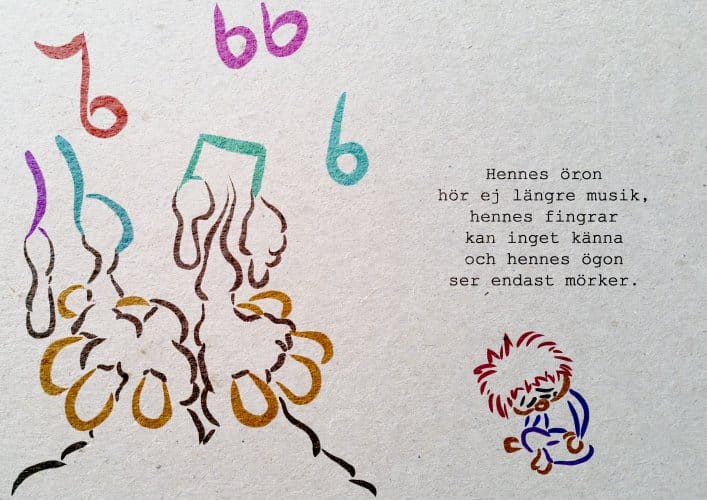 Hennes öron
hör ej längre musik,
hennes fingrar
kan inget känna
och hennes ögon
ser endast mörker.